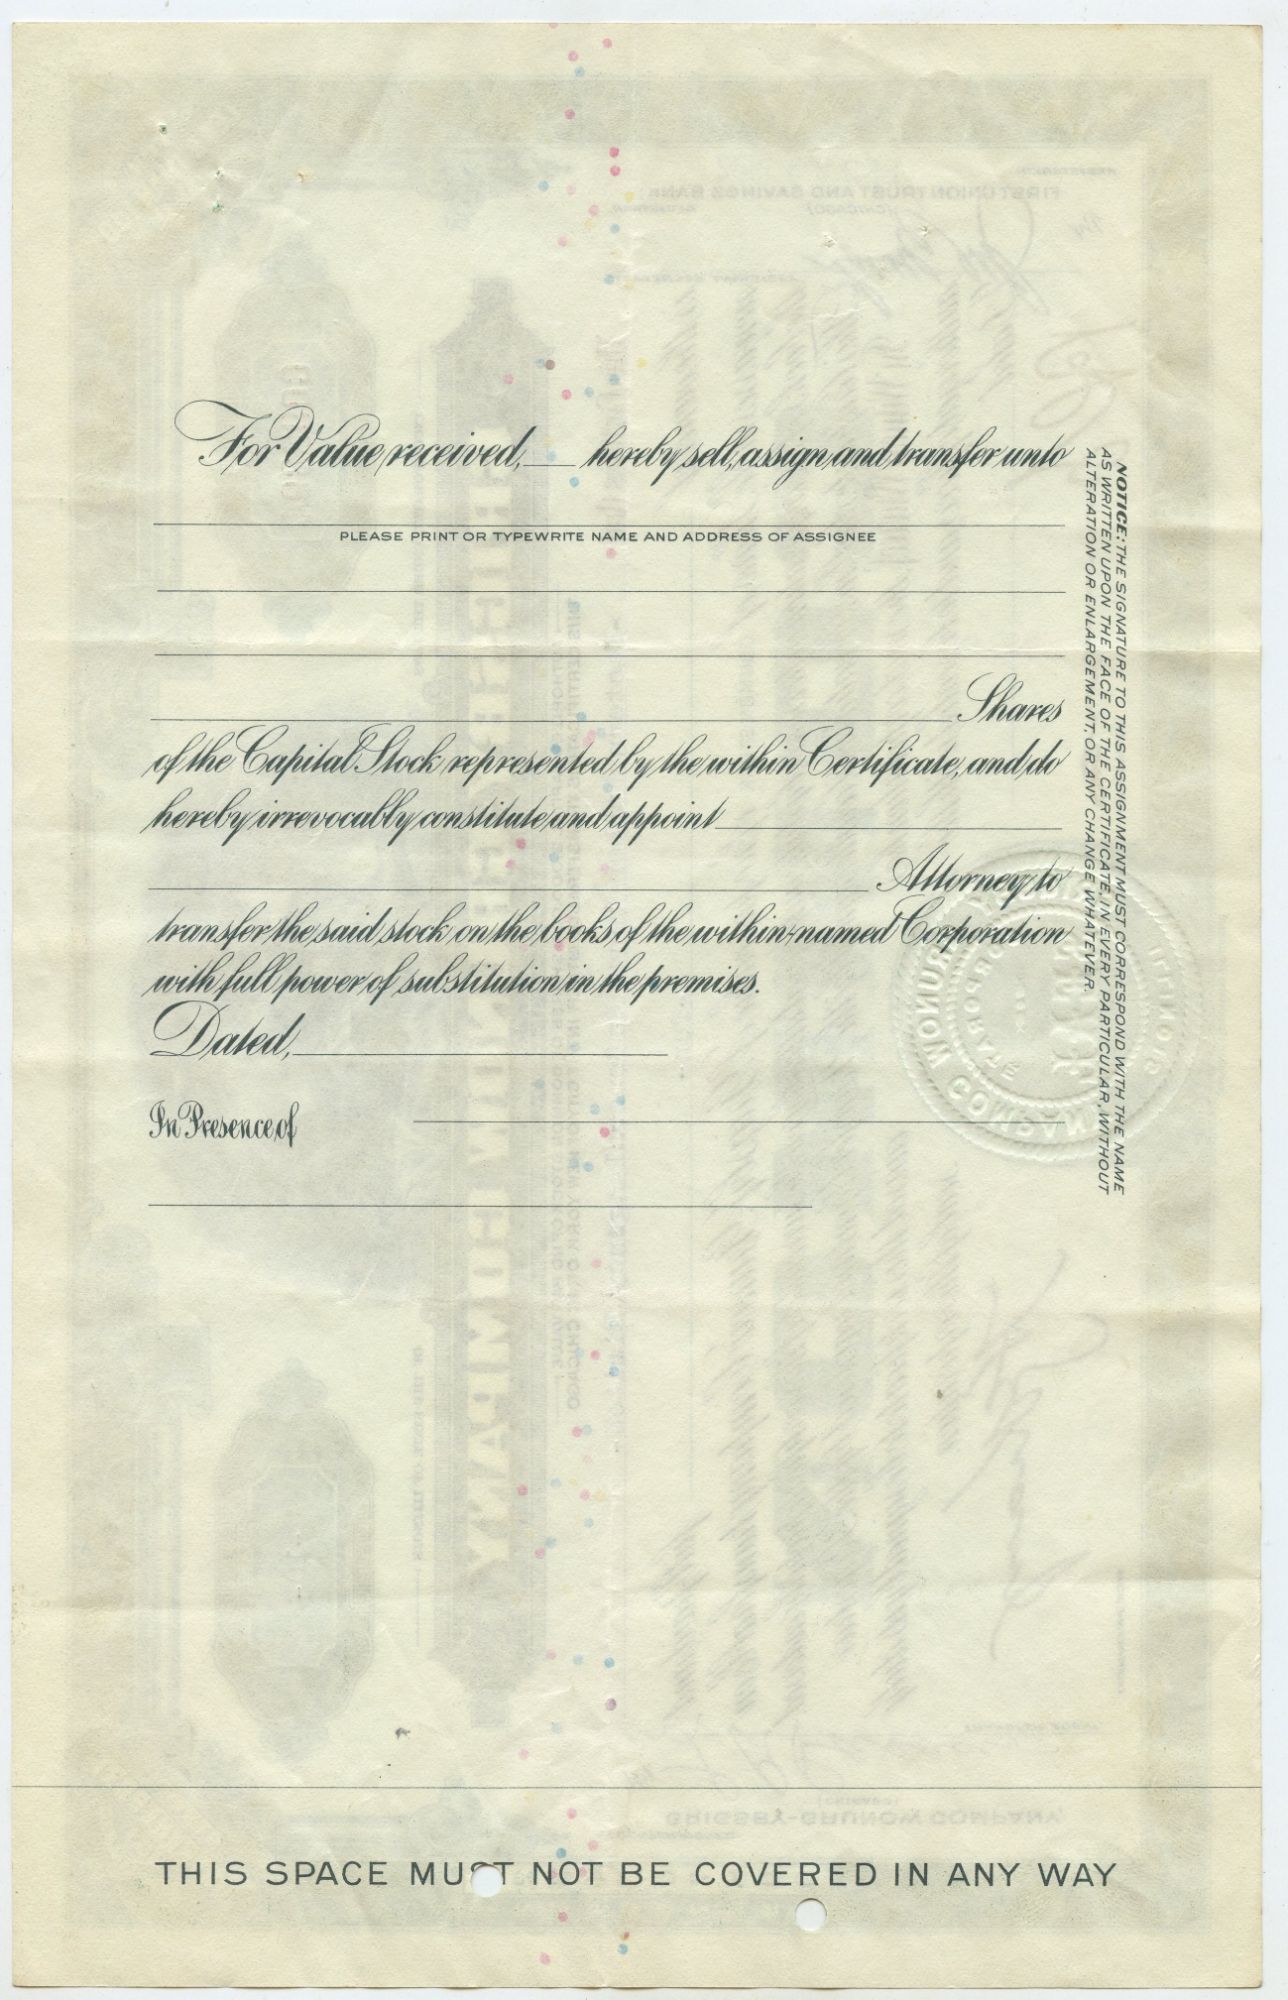 For Value received, ___ hereby sell, assign and transfer unto
PLEASE PRINT OR TYPEWRITE NAME AND ADDRESS OF ASSIGNEE
Shares
of the Capital Stock represented by the within Certificate, and do
hereby irrevocably constitute and appoint
Attorney to
transfer the said stock on the books of the within-named Corporation
with full power of substitution in the premises.
Dated,
In Presence of
NOTICE: THE SIGNATURE TO THIS ASSIGNMENT MUST CORRESPOND WITH THE NAME
AS WRITTEN UPON THE FACE OF THE CERTIFICATE, IN EVERY PARTICULAR, WITHOUT
ALTERATION OR ENLARGEMENT, OR ANY CHANGE WHATEVER.
FIRST UNION TRUST AND SAVINGS BANK
GRIGSBY-GRUNOW COMPANY
GRIGSBY-GRUNOW COMPANY
THIS SPACE MUST NOT BE COVERED IN ANY WAY